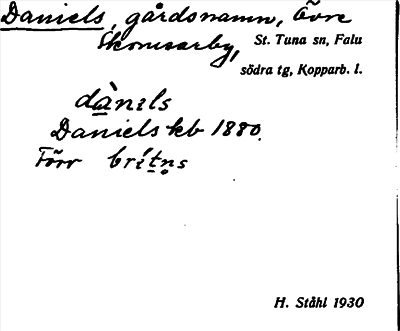 Daniels, gårdsnamn, Övre
Skomsarby, St. Tuna sn, Falu
södra tg, Kopparb. l.
dànɪls
Daniels kb 1880.
Förr brítn̥s
H. Ståhl 1930